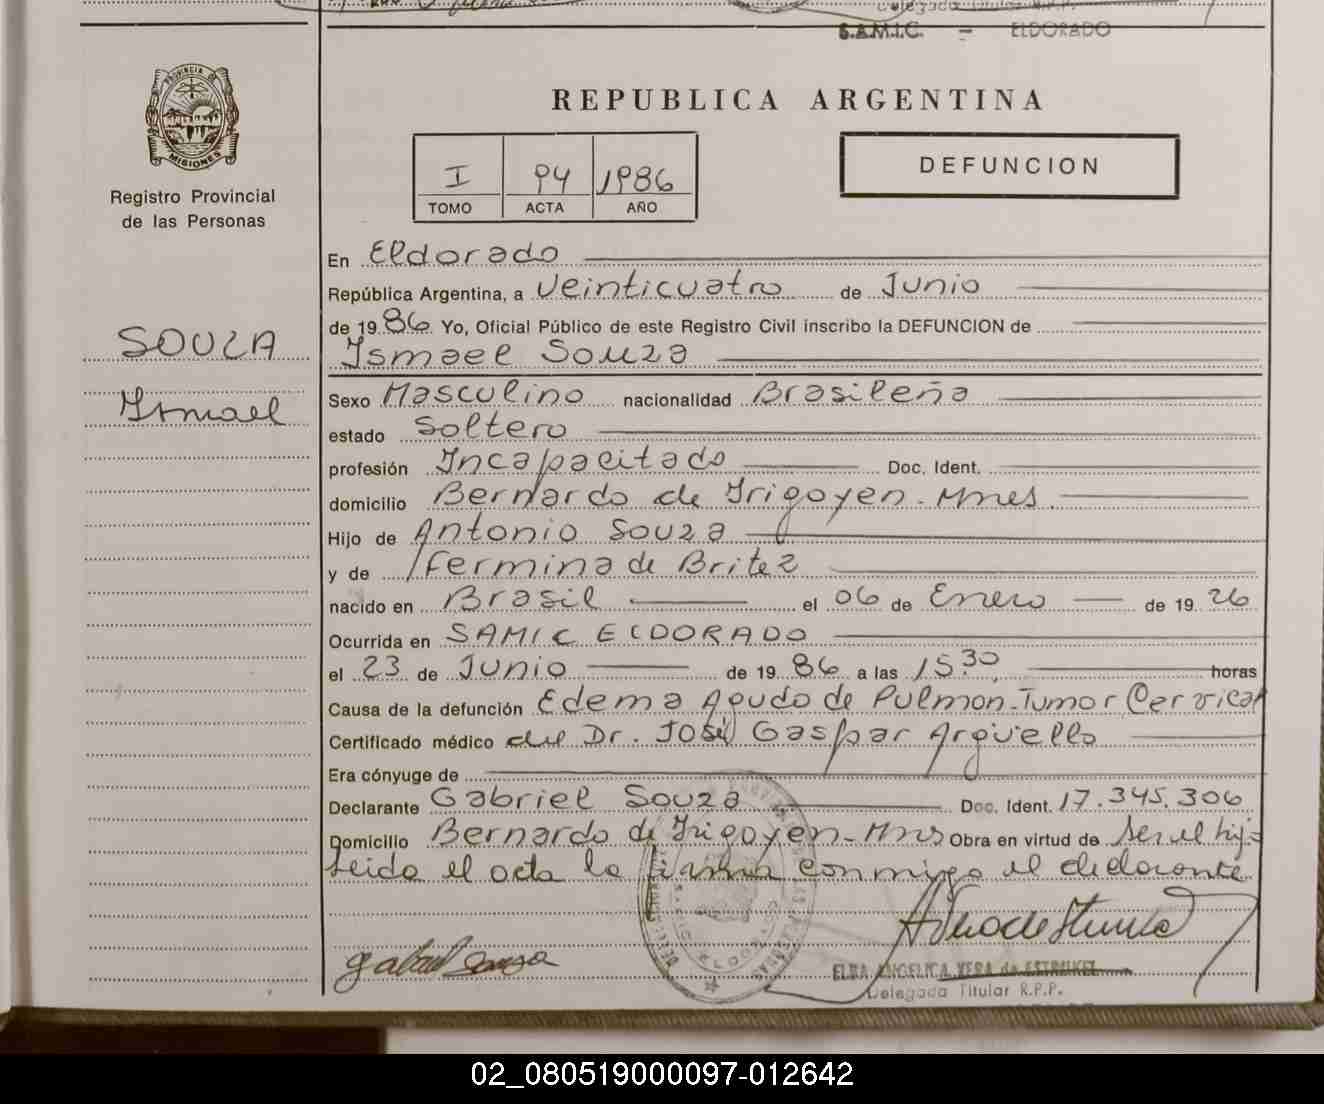 Delegada Titular R.P.P.
S.A.M.I.C. - ELDORADO
PROVINCIA DE
MISIONES
Registro Provincial
de las Personas
SOUZA
Ismael
REPUBLICA ARGENTINA
I 94 1986
TOMO ACTA AÑO
DEFUNCION
En Eldorado
República Argentina, a Veinticuatro de Junio
de 1986 Yo, Oficial Público de este Registro Civil inscribo la DEFUNCION de
Ismael Souza
Sexo Masculino nacionalidad Brasileña
estado Soltero
profesión Incapacitado Doc. Ident.
domicilio Bernardo de Irigoyen - Mnes.
Hijo de Antonio Souza
y de Fermina de Britez
nacido en Brasil el 06 de Enero de 1926
Ocurrida en SAMIC ELDORADO
el 23 de Junio de 1986 a las 15.30 horas
Causa de la defunción Edema Agudo de Pulmon - Tumor Cervical
Certificado médico del Dr. José Gaspar Argüello
Era cónyuge de
Declarante Gabriel Souza Doc. Ident. 17.345.306
Domicilio Bernardo de Irigoyen - Mns Obra en virtud de ser el hijo
Leida el acta la firma conmigo el declarante
Gabriel Souza
ELBA ANGELICA VERA de ESTRUKEL
Delegada Titular R.P.P.
02_080519000097-012642